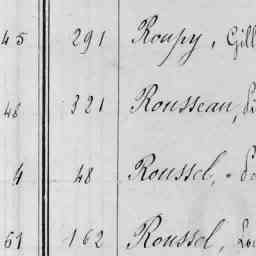 45 291 Roupy, Gill
48 321 Rousseau,
4 48 Roussel,
51 162 Roussel, Lou